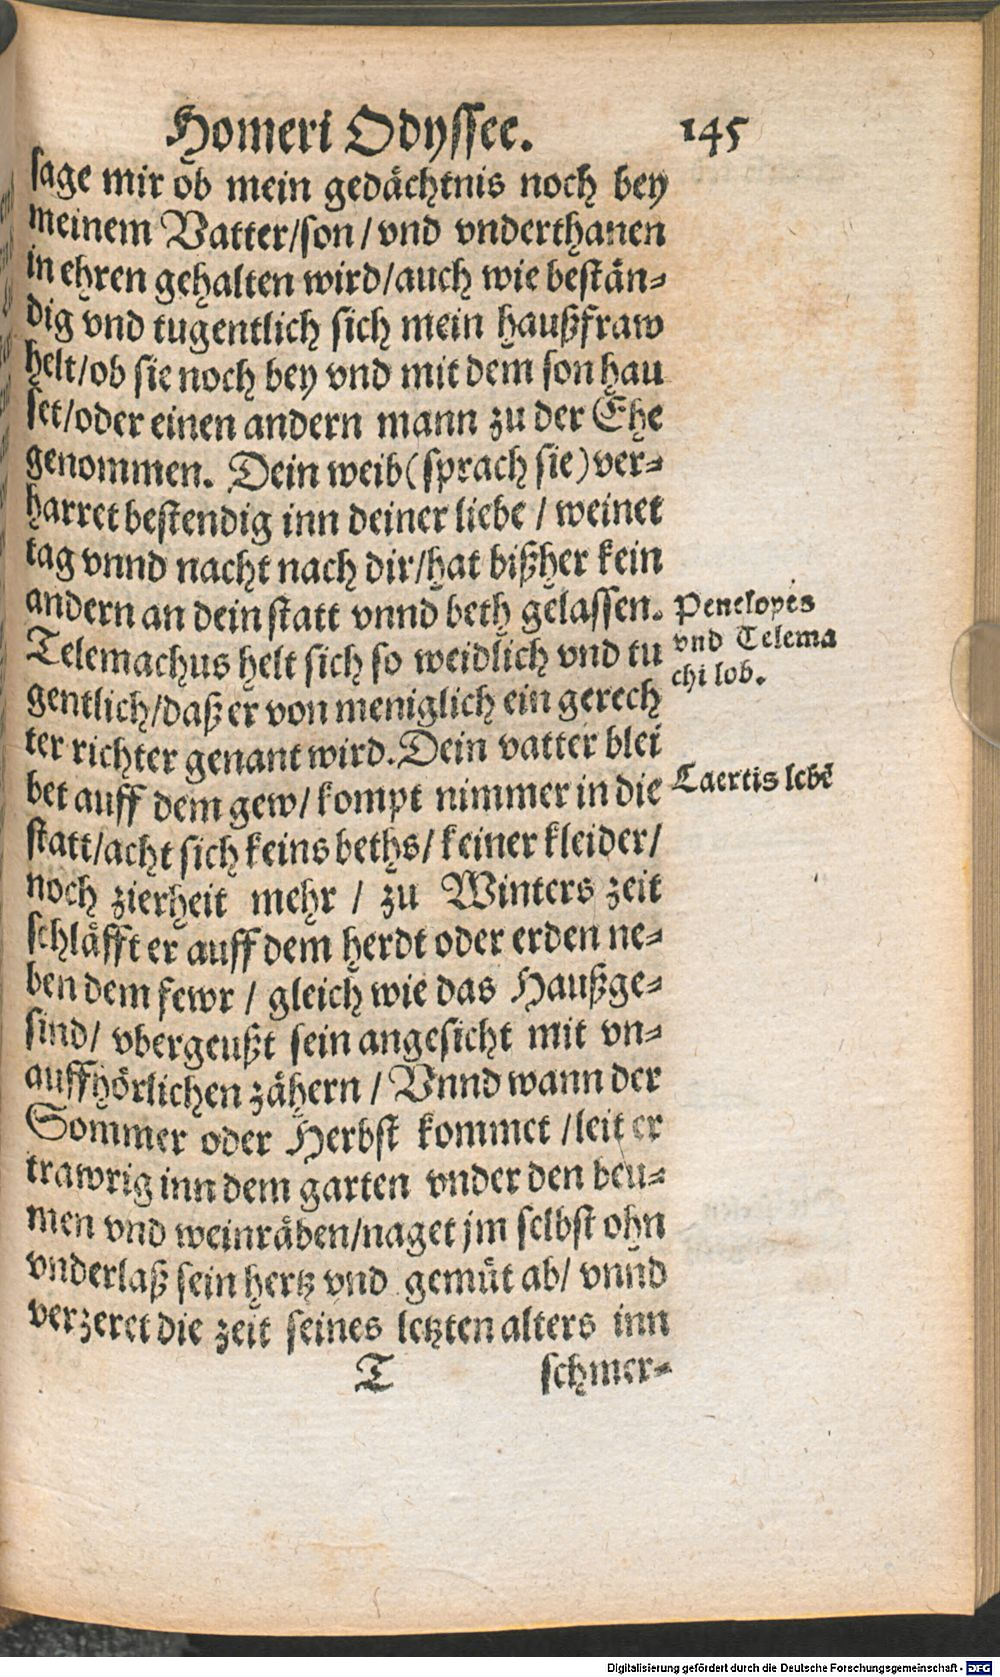 Homeri Odyssee. 145
sage mir ob mein gedächtnis noch bey
meinem Vatter/son/vnd vnderthanen
in ehren gehalten wird/auch wie bestän-
dig vnd tugentlich sich mein haußfraw
helt/ob sie noch bey vnd mit dem son hau
set/oder einen andern mann zu der Ehe
genommen. Dein weib(sprach sie)ver-
harret bestendig inn deiner liebe / weinet
tag vnnd nacht nach dir/hat bißher kein
andern an dein statt vnnd beth gelassen.
Penelopes
Telemachus helt sich so weidlich vnd tu
vnd Telema
chi lob.
gentlich/daß er von meniglich ein gerech
ter richter genant wird. Dein vatter blei
bet auff dem gew/ kompt nimmer in die
Laertis lebē
statt/acht sich keins beths/ keiner kleider/
noch zierheit mehr / zu Winters zeit
schläfft er auff dem herdt oder erden ne-
ben dem fewr / gleich wie das Haußge-
sind/ vbergeußt sein angesicht mit vn-
auffhörlichen zähern / Vnnd wann der
Sommer oder Herbst kommet /leit er
trawrig inn dem garten vnder den beu-
men vnd weinräben/naget jm selbst ohn
vnderlaß sein hertz vnd gemüt ab/ vnnd
verzeret die zeit seines letzten alters inn
T schmer-
Digitalisierung gefördert durch die Deutsche Forschungsgemeinschaft - DFG